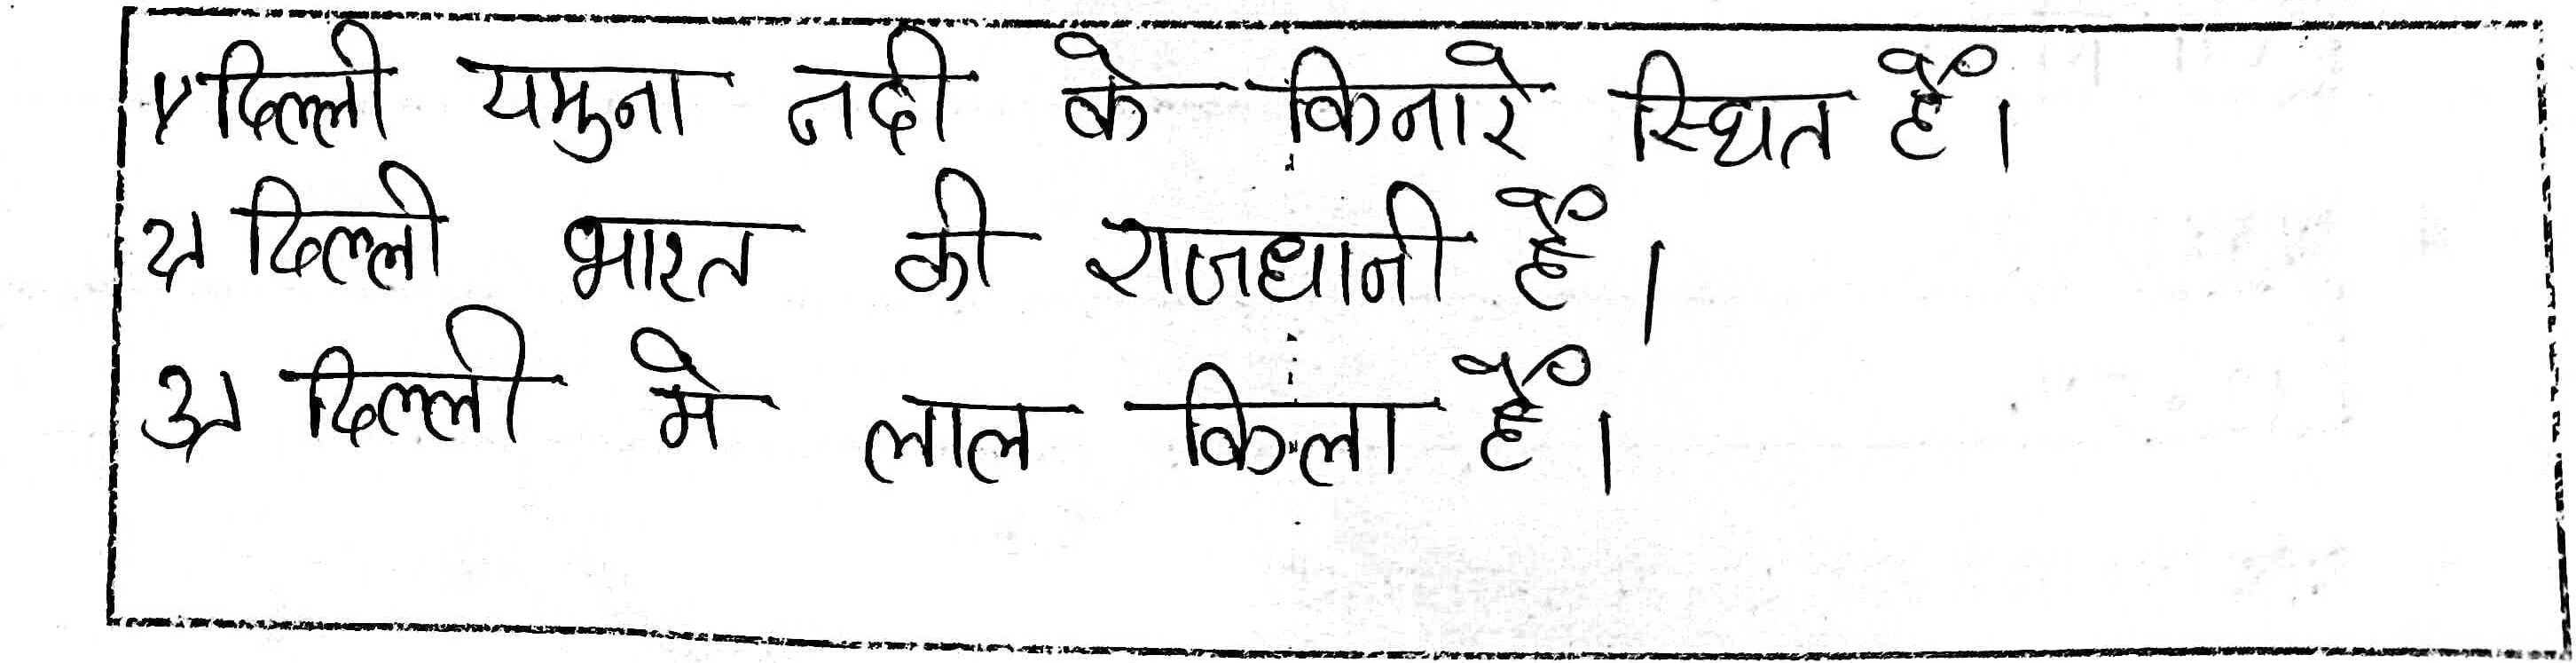 1) दिल्ली यमुना नदी के किनारे स्थित हैं।
2) दिल्ली भारत की राजधानी हैं।
3) दिल्ली मे लाल किला हैं।